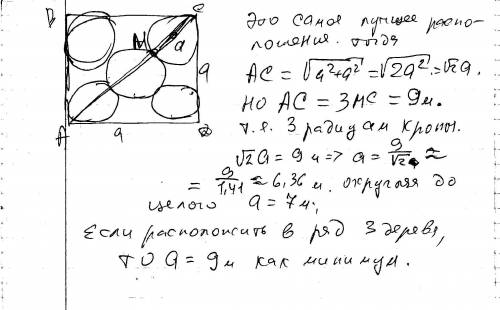 В С
Это самое лучшее распо-
ложение. тогда
М d
AC = √a²+a² = √2a² = √2a.
a
НО AC = 3MC = 9м.
т.е. 3 радиусам кроны.
A a D
√2a = 9м => a = 9/√2 ≈
= 9/1,41 ≈ 6,36 м. округляя до
целого a = 7м.,
Если расположить в ряд 3 дерева,
то a = 9м как минимум.